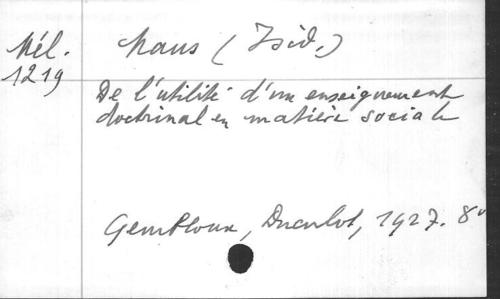 Mél. Maus (Isid.)
1219
De l'utilité d'un enseignement
doctrinal en matière sociale
Gembloux, Duculot, 1927. 8°